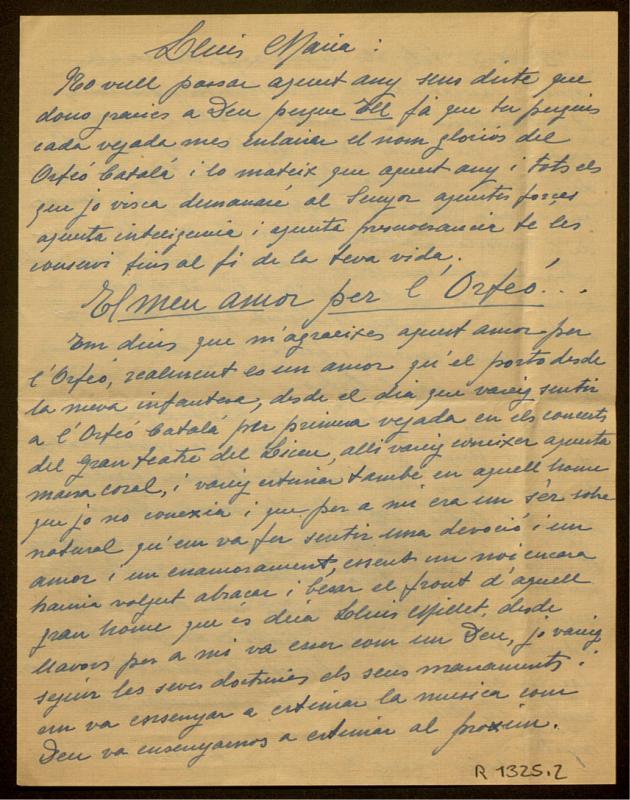 Lluis Maria:
No vull passar aquest any sens dirte que
dono gracies a Deu perque Ell fá que tu puguis
cada vejada mes enlairar el nom gloriós del
Orfeó Catalá i lo mateix que aquest any i tots els
que jo visca demanaré al Senyor aquestes forçes
aquesta inteligencia i aquesta preseverancia te les
conservi fins al fi de la teva vida.
El meu amor per l'Orfeó...
Em dius que m'agraeixes aquest amor per
l'Orfeó, realment es un amor qu'el porto desde
la meva infantesa, desde el dia que vareig sentir
a l'Orfeó Catalá per primera vejada en els concerts
del Gran teatre del Liceu, alli vareig coneixer aquesta
massa coral, i vareig estimar també en aquell home
que jo no coneixia i que per a mi era un sér sobre
natural qu'em va fer sentir una devoció i un
amor i un enamorament, essent un noi encara
hauria volgut abraçar i besar el front d'aquell
gran home que és deia Lluis Millet, desde
llavors per a mi va esser com un Deu, jo vareig
sejuir les seves doctrines els seus manaments i
em va ensenyar a estimar la musica com
Deu va ensenyarnos a estimar al proxim.
R 1325.2